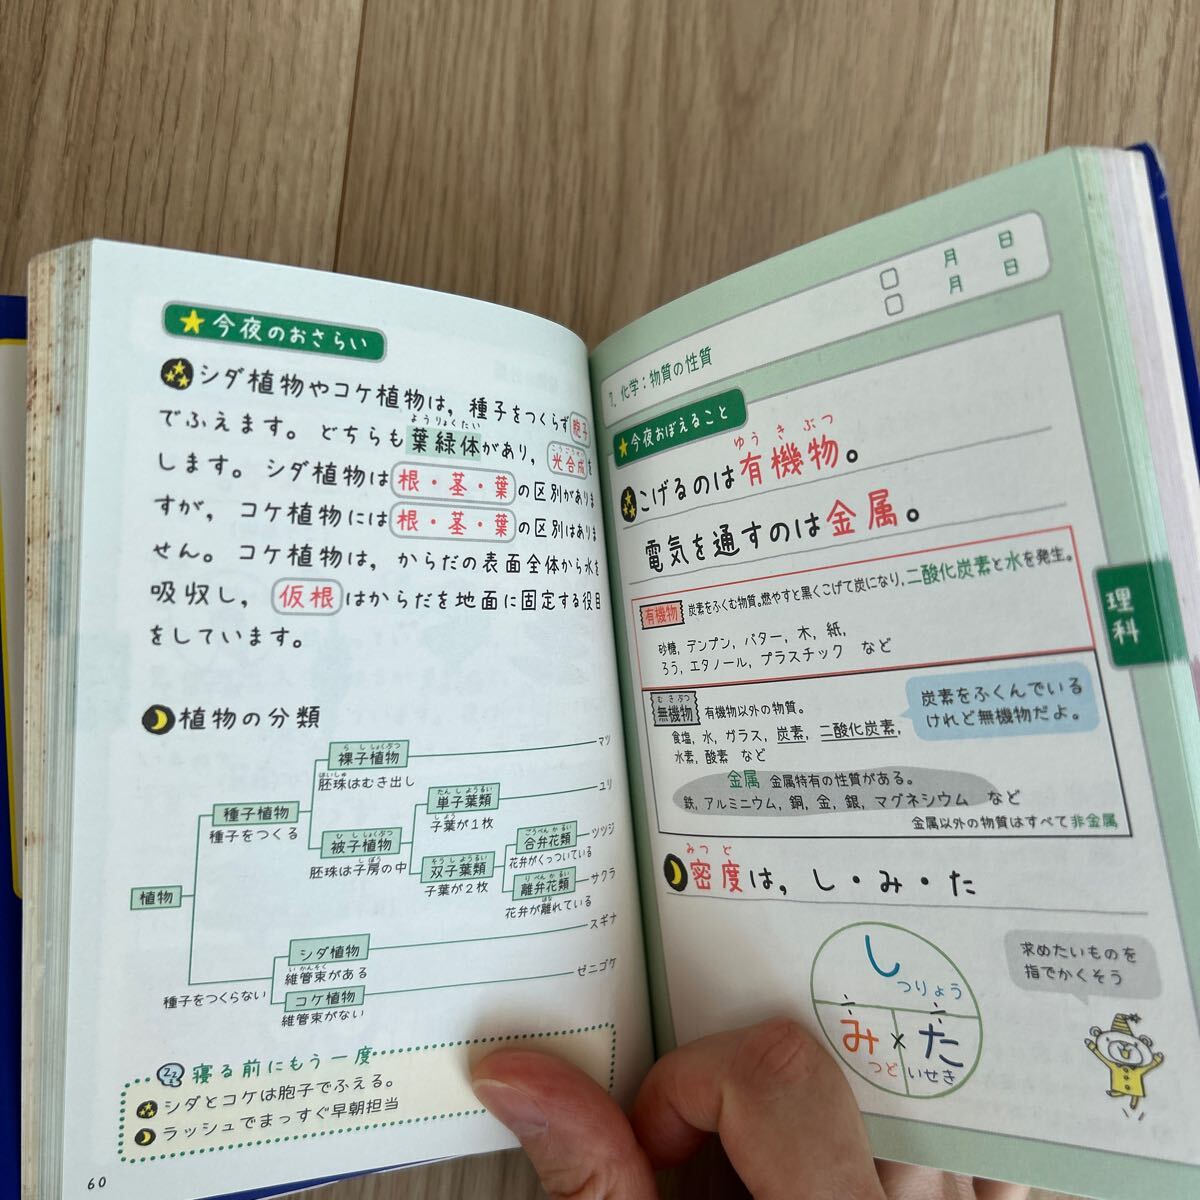 今夜のおさらい
シダ植物やコケ植物は，種子をつくらず胞子
でふえます。どちらも葉緑体があり，光合成を
ようりょくたい
こうごうせい
します。シダ植物は根・茎・葉の区別がありま
すが，コケ植物には根・茎・葉の区別はありま
せん。コケ植物は，からだの表面全体から水を
吸収し，仮根はからだを地面に固定する役目
をしています。
植物の分類
植物
種子植物
種子をつくる
らししょくぶつ
裸子植物
はいしゅ
胚珠はむき出し
マツ
ひししょくぶつ
被子植物
しぼう
胚珠は子房の中
たんしようるい
単子葉類
しよう
子葉が1枚
ユリ
そうしようるい
双子葉類
子葉が2枚
ごうべんかるい
合弁花類
花弁がくっついている
ツツジ
りべんかるい
離弁花類
はな
花弁が離れている
サクラ
種子をつくらない
シダ植物
いかんそく
維管束がある
スギナ
コケ植物
維管束がない
ゼニゴケ
寝る前にもう一度
シダとコケは胞子でふえる。
ラッシュでまっすぐ早朝担当
60
月 日
月 日
7. 化学：物質の性質
今夜おぼえること
ゆうきぶつ
こげるのは有機物。
電気を通すのは金属。
有機物 炭素をふくむ物質。燃やすと黒くこげて炭になり，二酸化炭素と水を発生。
砂糖，デンプン，バター，木，紙，
ろう，エタノール，プラスチック など
むきぶつ
無機物 有機物以外の物質。
食塩，水，ガラス，炭素，二酸化炭素，
水素，酸素 など
炭素をふくんでいる
けれど無機物だよ。
金属 金属特有の性質がある。
鉄，アルミニウム，銅，金，銀，マグネシウム など
金属以外の物質はすべて非金属
理科
みつど
密度は，し・み・た
し
つりょう
÷ ÷
み × た
つど いせき
求めたいものを
指でかくそう